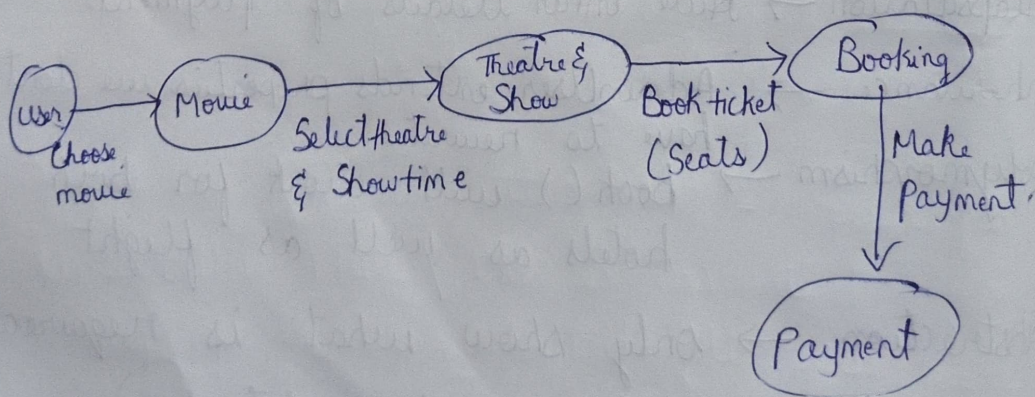 User
Choose
movie
Movie
Select theatre
& Showtime
Theatre &
Show
Book ticket
(Seats)
Booking
Make
Payment.
Payment